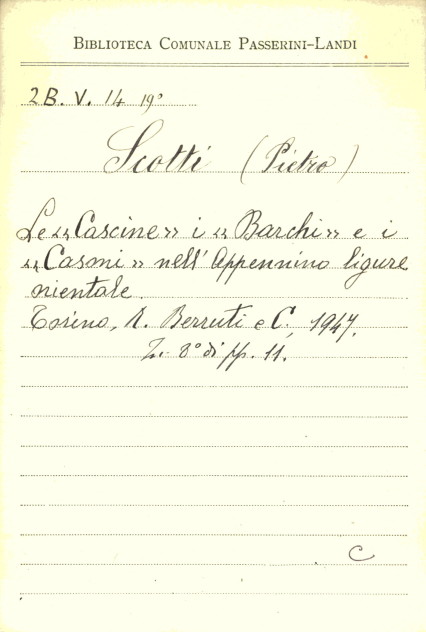 BIBLIOTECA COMUNALE PASSERINI-LANDI
2B. V. 14 19°
Scotti (Pietro)
Le «Cascine» i «Barchi» e i
«Casoni» nell'Appennino ligure
orientale.
Torino, A. Berruti e C., 1947.
In 8° di pp. 11.
C